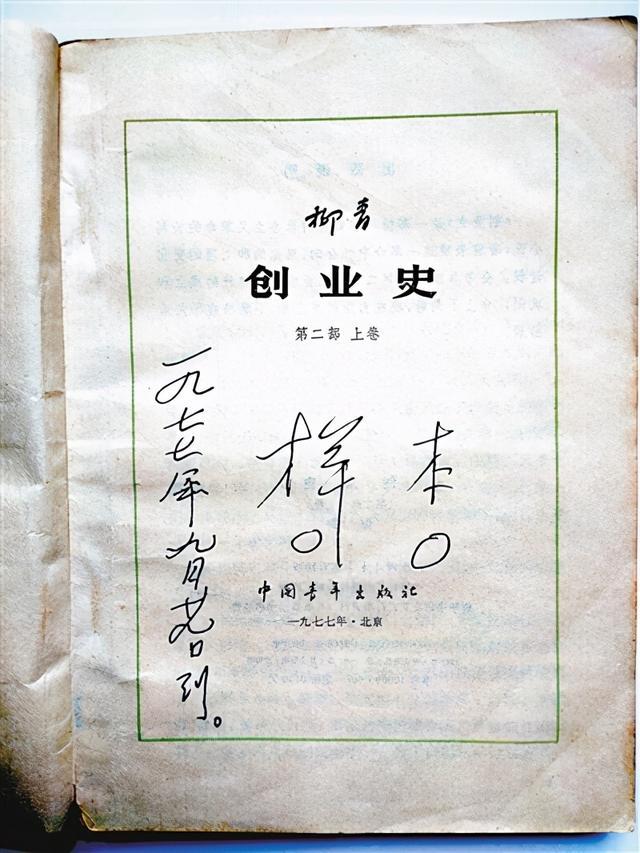 柳青
创业史
第二部 上卷
样本
一九七七年九月廿九日到。
中国青年出版社
一九七七年·北京